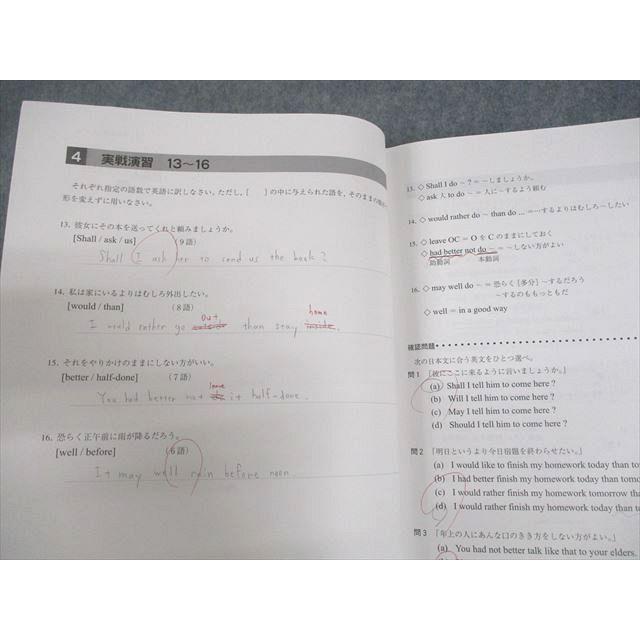 4 実戦演習 13〜16
それぞれ指定の語数で英語に訳しなさい。ただし, [ ] の中に与えられた語を, そのままの
形を変えずに用いなさい。
13. 彼女にその本を送ってくれと頼みましょうか。
[Shall / ask / us] (9語)
Shall I ask her to send us the book?
14. 私は家にいるよりはむしろ外出したい。
[would / than] (8語)
out home
I would rather go outside than stay inside.
15. それをやりかけのままにしない方がいい。
[better / half-done] (7語)
leave
You had better not do it half-done.
16. 恐らく正午前に雨が降るだろう。
[well / before] (6語)
It may well rain before noon.
13. ◇ Shall I do ~ ? = ~しましょうか。
◇ ask 人 to do ~ = 人に~するよう頼む
14. ◇ would rather do ~ than do ... = …するよりはむしろ~したい
15. ◇ leave OC = O を C のままにしておく
◇ had better not do ~ = ~しない方がよい
助動詞 本動詞
16. ◇ may well do ~ = 恐らく [多分] ~するだろう
~するのももっともだ
◇ well = in a good way
確認問題
次の日本文に合う英文をひとつ選べ。
問1 「彼にここに来るように言いましょうか。」
(a) Shall I tell him to come here ?
(b) Will I tell him to come here ?
(c) May I tell him to come here ?
(d) Should I tell him to come here ?
問2 「明日というより今日宿題を終わらせたい。」
(a) I would like to finish my homework today than to
(b) I had better finish my homework today than tomo
(c) I would rather finish my homework tomorrow tha
(d) I would rather finish my homework today than to
問3 「年上の人にあんな口のきき方をしない方がよい。」
(a) You had not better talk like that to your elders.